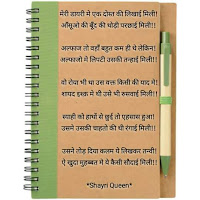 मेरी डायरी में एक दोस्त की लिखाई मिली!!
आँसूओ की बूँद की थोड़ी परछाई मिली!!
अल्फाज तो वहाँ बहुत कम ही थे लेकिन!
अल्फाजो मे लिपटी उसकी तन्हाई मिली!!
वो रोया भी था उस वक्त किसी की याद मे!
शायद इश्क़ मे थी उसे भी रुसवाई मिली!!
स्याही को हाथों से छुई तो एहसास हुआ!
उसमे उसकी चाहतो की थी रंगाई मिली!!
उसने तोड़ दिया कलम ये लिखकर तन्वी!
ऐ खुदा मुहब्बत मे ये कैसी सौदाई मिली!!
*Shayri Queen*